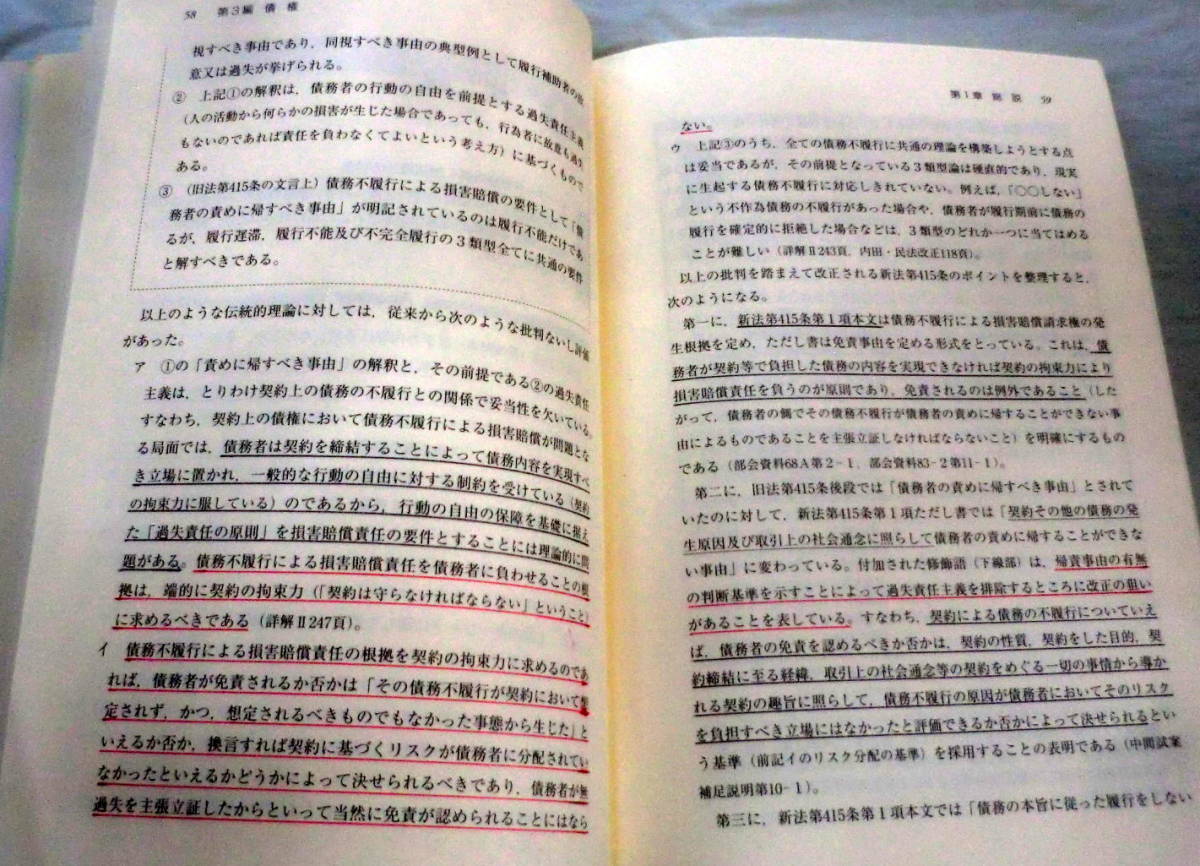 58 第3編 債 権
視すべき事由であり，同視すべき事由の典型例として履行補助者の故
意又は過失が挙げられる。
② 上記①の解釈は，債務者の行動の自由を前提とする過失責任主義
（人の活動から何らかの損害が生じた場合であっても，行為者に故意も過失
もないのであれば責任を負わなくてよいという考え方）に基づくもので
ある。
③ （旧法第415条の文言上）債務不履行による損害賠償の要件として「債
務者の責めに帰すべき事由」が明記されているのは履行不能だけであ
るが，履行遅滞，履行不能及び不完全履行の3類型全てに共通の要件
と解すべきである。
以上のような伝統的理論に対しては，従来から次のような批判ないし評価
があった。
ア ①の「責めに帰すべき事由」の解釈と，その前提である②の過失責任
主義は，とりわけ契約上の債務の不履行との関係で妥当性を欠いている。
すなわち，契約上の債権において債務不履行による損害賠償が問題とな
る局面では，債務者は契約を締結することによって債務内容を実現すべ
き立場に置かれ，一般的な行動の自由に対する制約を受けている（契約
の拘束力に服している）のであるから，行動の自由の保障を基礎に据え
た「過失責任の原則」を損害賠償責任の要件とすることには理論的に問
題がある。債務不履行による損害賠償責任を債務者に負わせることの根
拠は，端的に契約の拘束力（「契約は守らなければならない」ということ）
に求めるべきである（詳解Ⅱ247頁）。
イ 債務不履行による損害賠償責任の根拠を契約の拘束力に求めるのであ
れば，債務者が免責されるか否かは「その債務不履行が契約において想
定されず，かつ，想定されるべきものでもなかった事態から生じた」と
いえるか否か，換言すれば契約に基づくリスクが債務者に分配されてい
なかったといえるかどうかによって決せられるべきであり，債務者が無
過失を主張立証したからといって当然に免責が認められることにはなら
第1章 総 説 59
ない。
ウ 上記③のうち，全ての債務不履行に共通の理論を構築しようとする点
は妥当であるが，その前提となっている3類型論は硬直的であり，現実
に生起する債務不履行に対応しきれていない。例えば，「〇〇しない」
という不作為債務の不履行があった場合や，債務者が履行期前に債務の
履行を確定的に拒絶した場合などは，3類型のどれか一つに当てはめる
ことが難しい（詳解Ⅱ243頁，内田・民法改正118頁）。
以上の批判を踏まえて改正される新法第415条のポイントを整理すると，
次のようになる。
第一に，新法第415条第1項本文は債務不履行による損害賠償請求権の発
生根拠を定め，ただし書は免責事由を定める形式をとっている。これは，債
務者が契約等で負担した債務の内容を実現できなければ契約の拘束力により
損害賠償責任を負うのが原則であり，免責されるのは例外であること（した
がって，債務者の側でその債務不履行が債務者の責めに帰することができない事
由によるものであることを主張立証しなければならないこと）を明確にするもの
である（部会資料68A第2-1，部会資料83-2第11-1）。
第二に，旧法第415条後段では「債務者の責めに帰すべき事由」とされて
いたのに対して，新法第415条第1項ただし書では「契約その他の債務の発
生原因及び取引上の社会通念に照らして債務者の責めに帰することができな
い事由」に変わっている。付加された修飾語（下線部）は，帰責事由の有無
の判断基準を示すことによって過失責任主義を排除するところに改正の狙い
があることを表している。すなわち，契約による債務の不履行についていえ
ば，債務者の免責を認めるべきか否かは，契約の性質，契約をした目的，契
約締結に至る経緯，取引上の社会通念等の契約をめぐる一切の事情から導か
れる契約の趣旨に照らして，債務不履行の原因が債務者においてそのリスク
を負担すべき立場にはなかったと評価できるか否かによって決せられるとい
う基準（前記イのリスク分配の基準）を採用することの表明である（中間試案
補足説明第10-1）。
第三に，新法第415条第1項本文では「債務の本旨に従った履行をしない